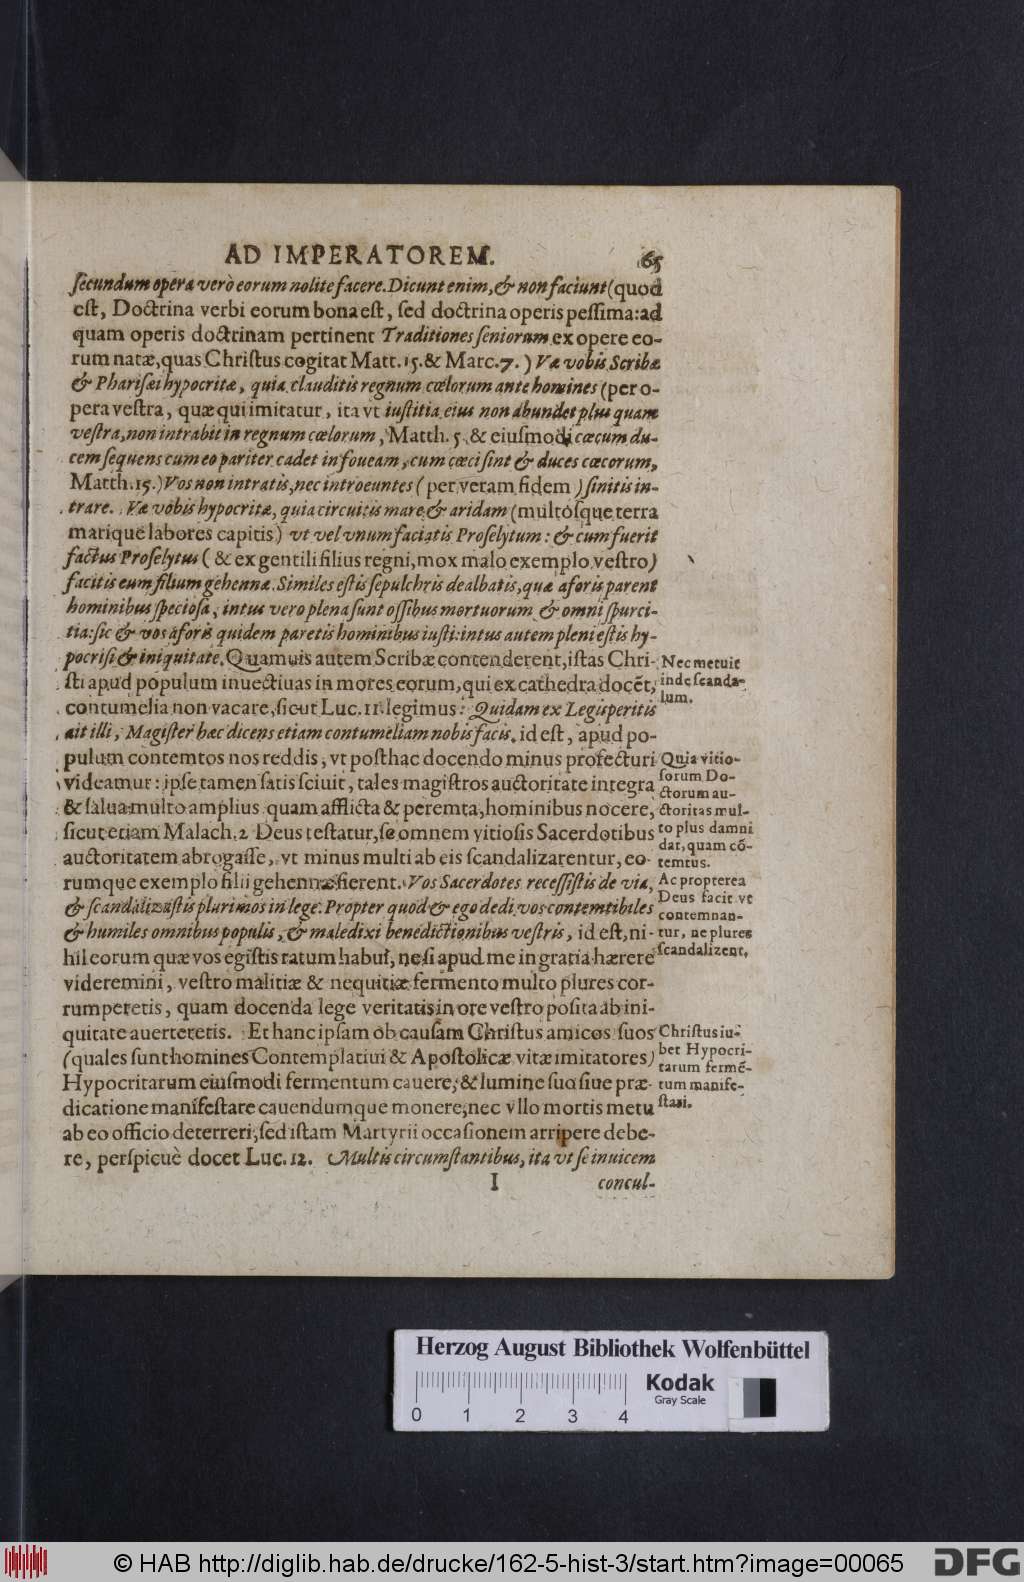 AD IMPERATOREM. 65
ſecundum opera verò eorum nolite facere. Dicunt enim, & non faciunt (quod
est, Doctrina verbi eorum bona est, ſed doctrina operis peſſima: ad
quam operis doctrinam pertinent Traditiones ſeniorum ex opere eo-
rum natæ, quas Chriſtus cogitat Matt. 15. & Marc. 7. ) Væ vobis Scribæ
& Phariſæi hypocritæ, quia clauditis regnum cœlorum ante homines (per o-
pera veſtra, quæ qui imitatur, ita vt iuſtitia eius non abundet plus quam
veſtra, non intrabit in regnum cœlorum, Matth. 5. & eiuſmodi cæcum du-
cem ſequens cum eo pariter cadet in foueam, cum cæci ſint & duces cæcorum,
Matth. 15.) Vos non intratis, nec introeuntes ( per veram fidem ) ſinitis in-
trare. Væ vobis hypocritæ, quia circuitis mare & aridam (multoſque terra
marique labores capitis) vt vel vnum faciatis Proſelytum: & cum fuerit
factus Proſelytus ( & ex gentili filius regni, mox malo exemplo veſtro)
facitis eum filium gehennæ. Similes eſtis ſepulchris dealbatis, quæ aforis parent
hominibus ſpecioſa, intus vero plena ſunt oſſibus mortuorum & omni ſpurci-
tia: ſic & vos aforis quidem paretis hominibus iuſti: intus autem pleni eſtis hy-
pocriſi & iniquitate. Quamuis autem Scribæ contenderent, iſtas Chri-
ſti apud populum inuectiuas in mores eorum, qui ex cathedra docẽt,
contumelia non vacare, ſicut Luc. 11. legimus: Quidam ex Legisperitis
ait illi, Magiſter hæc dicens etiam contumeliam nobis facis. id eſt, apud po-
pulum contemtos nos reddis, vt poſthac docendo minus profecturi
videamur: ipſe tamen ſatis ſciuit, tales magiſtros auctoritate integra
& ſalua multo amplius quam afflicta & peremta, hominibus nocere,
ſicut etiam Malach. 2 Deus teſtatur, ſe omnem vitioſis Sacerdotibus
auctoritatem abrogaſſe, vt minus multi ab eis ſcandalizarentur, eo-
rumque exemplo filii gehennæ fierent. Vos Sacerdotes receſſiſtis de via,
& ſcandalizaſtis plurimos in lege. Propter quod & ego dedi vos contemtibiles
& humiles omnibus populis, & maledixi benedictionibus veſtris, id eſt, ni-
hil eorum quæ vos egiſtis ratum habui, ne ſi apud me in gratia hærere
videremini, veſtro malitiæ & nequitiæ fermento multo plures cor-
rumperetis, quam docenda lege veritatis in ore veſtro poſita ab ini-
quitate auerteretis. Et hanc ipſam ob cauſam Chriſtus amicos ſuos
(quales ſunt homines Contemplatiui & Apoſtolicæ vitæ imitatores)
Hypocritarum eiuſmodi fermentum cauere, & lumine ſuo ſiue præ-
dicatione manifeſtare cauendumque monere, nec vllo mortis metu
ab eo officio deterreri, ſed iſtam Martyrii occaſionem arripere debe-
re, perſpicuè docet Luc. 12. Multis circumſtantibus, ita vt ſe inuicem
I concul-
Nec metuit
inde ſcanda-
lum.
Quia vitio-
ſorum Do-
ctorum au-
ctoritas mul-
to plus damni
dat, quam cõ-
temtus.
Ac propterea
Deus facit vt
contemnan-
tur, ne plures
ſcandalizent.
Chriſtus iu-
bet Hypocri-
tarum fermẽ-
tum manife-
ſtari.
Herzog August Bibliothek Wolfenbüttel
Kodak
Gray Scale
0 1 2 3 4
© HAB http://diglib.hab.de/drucke/162-5-hist-3/start.htm?image=00065
DFG